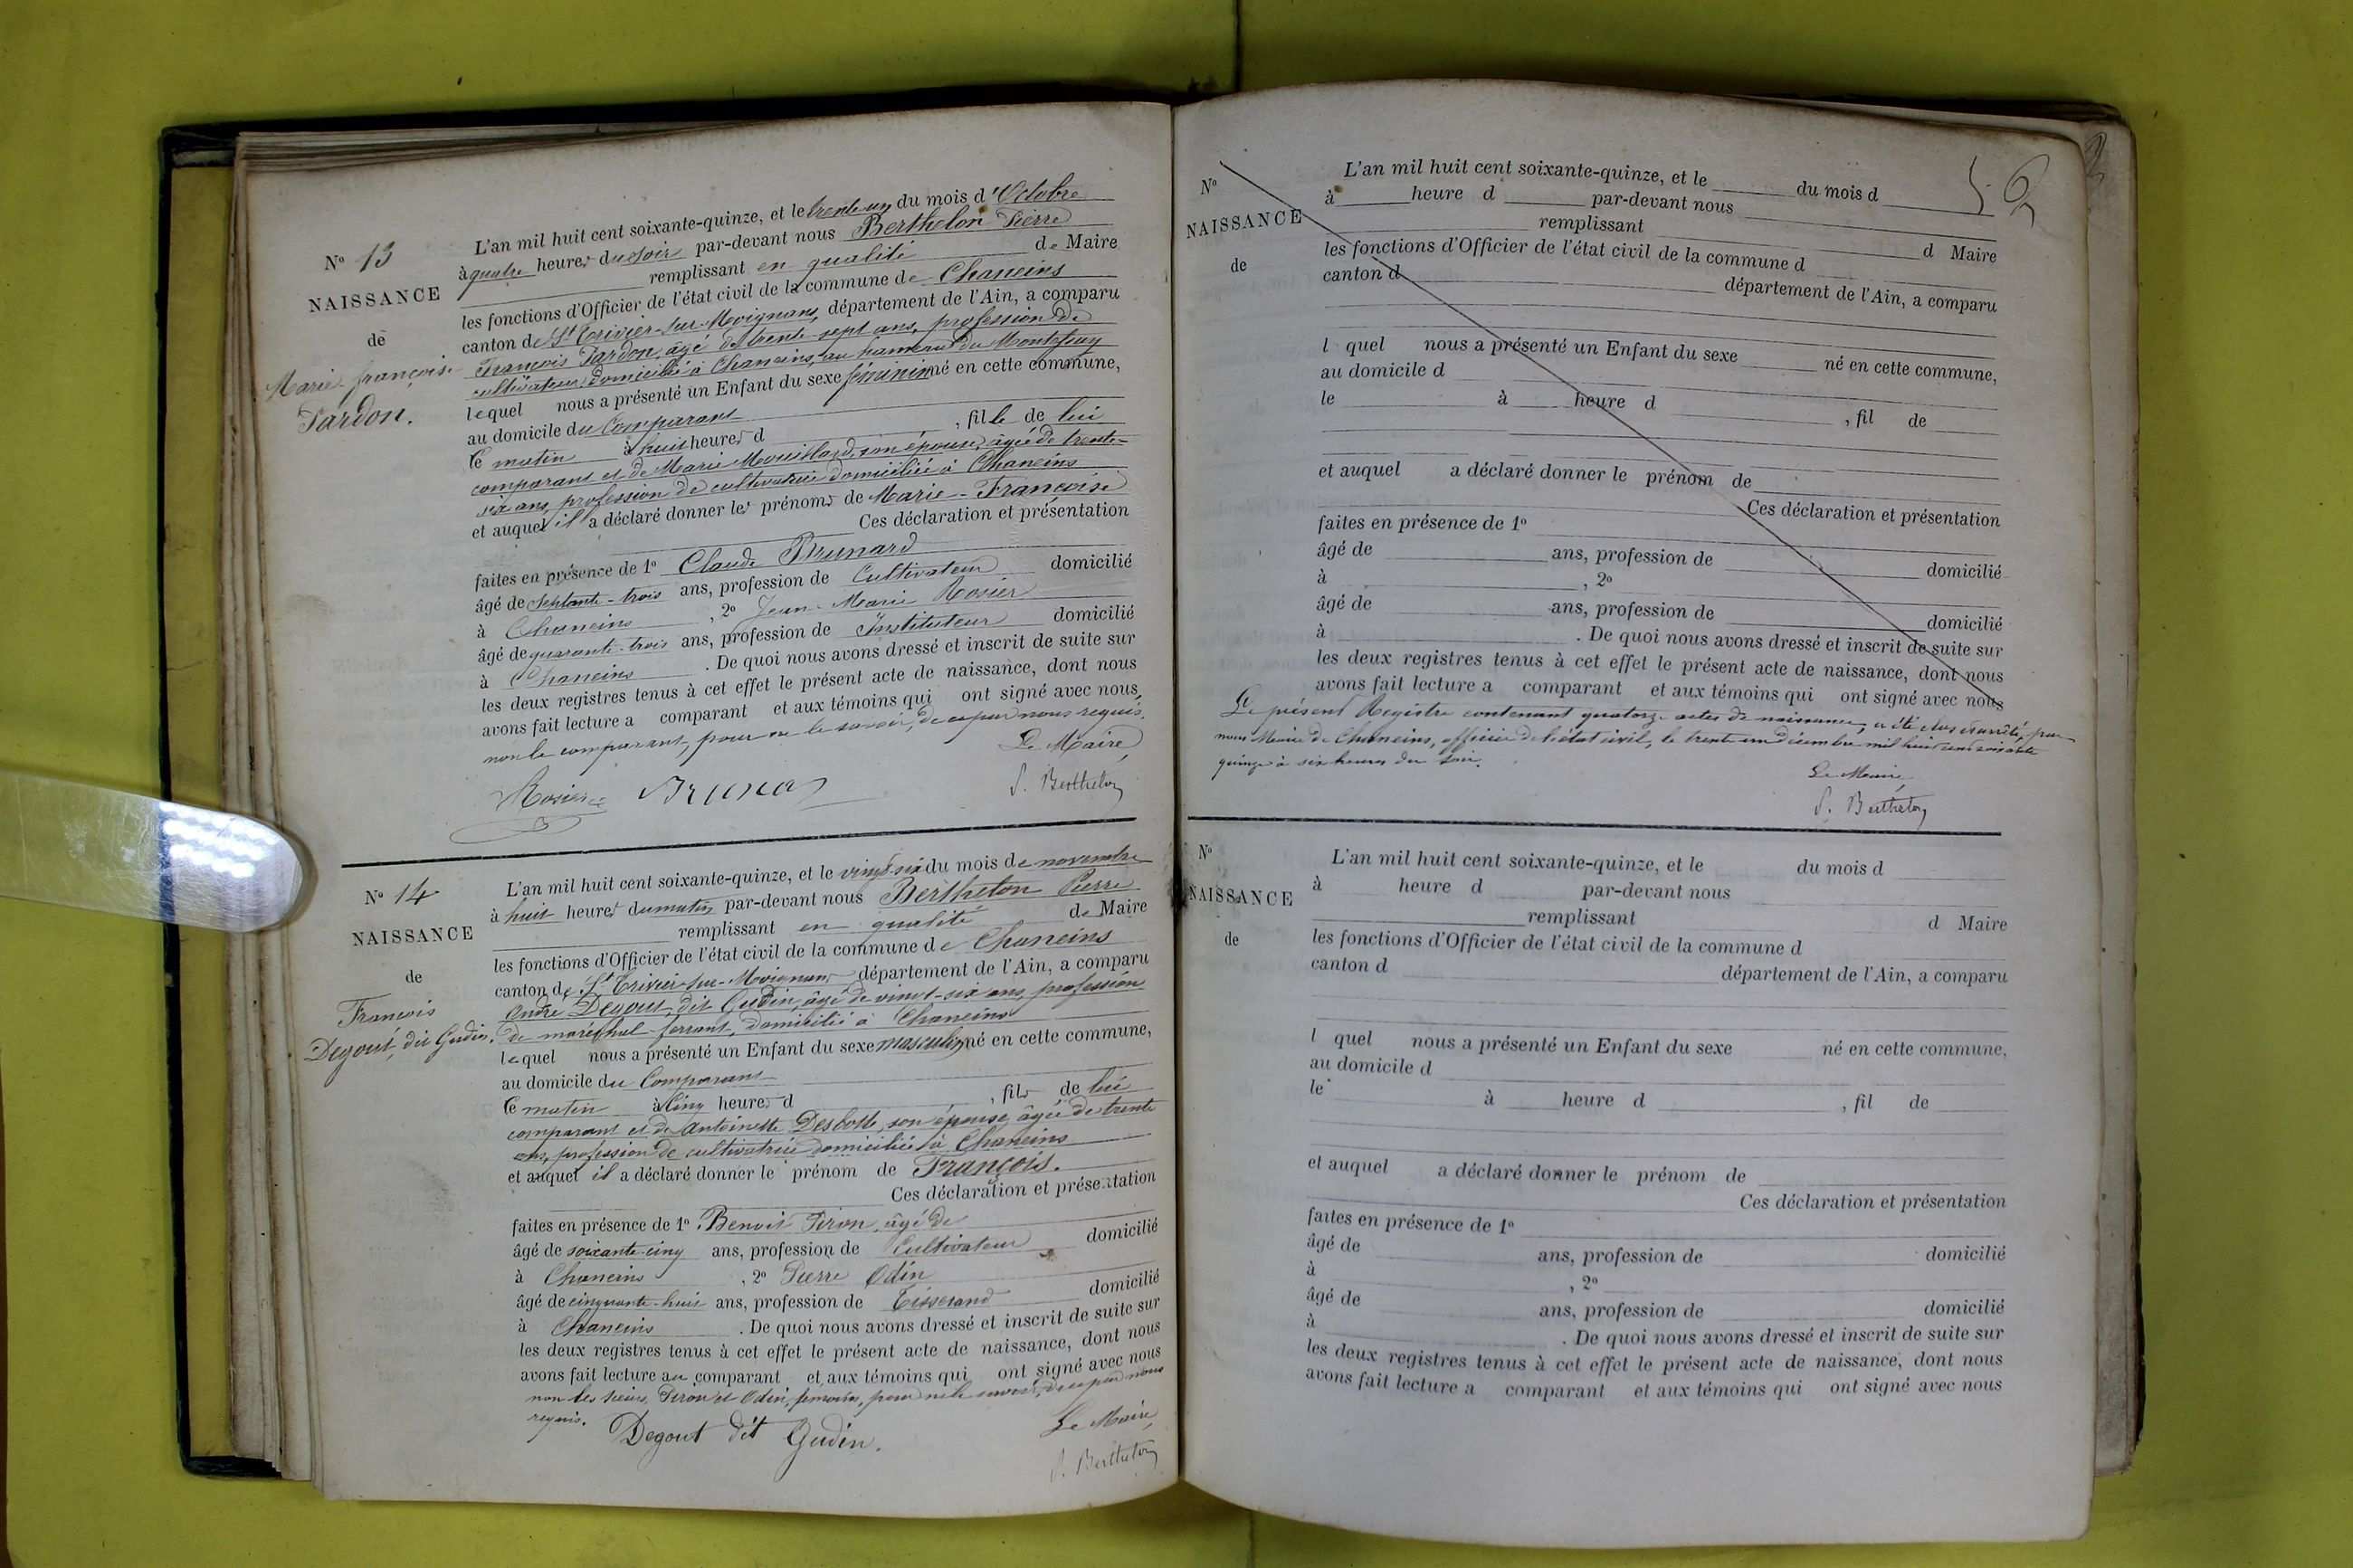 N° 13
NAISSANCE
de
Marie-françoise
Pardon.
L'an mil huit cent soixante-quinze, et le trente-un du mois d'Octobre
à quatre heures du soir par-devant nous Berthelon Pierre
remplissant en qualité de Maire
les fonctions d'Officier de l'état civil de la commune de Chaneins
canton de St Trivier-sur-Moignans, département de l'Ain, a comparu
François Pardon, âgé de trente-sept ans, profession de
cultivateur domicilié à Chaneins, au hameau du Montefray
lequel nous a présenté un Enfant du sexe féminin né en cette commune,
au domicile du Comparant
le matin à huit heures d , fille de lui
comparant et de Marie Mouillard, son épouse, âgée de trente-
six ans, profession de cultivatrice domiciliée à Chaneins
et auquel il a déclaré donner les prénoms de Marie-Françoise
Ces déclaration et présentation
faites en présence de 1° Claude Brunard
âgé de septante-trois ans, profession de Cultivateur domicilié
à Chaneins , 2° Jean-Marie Rosier
âgé de quarante-trois ans, profession de Instituteur domicilié
à Chaneins . De quoi nous avons dressé et inscrit de suite sur
les deux registres tenus à cet effet le présent acte de naissance, dont nous
avons fait lecture a comparant et aux témoins qui ont signé avec nous,
non le comparant, pour ne le savoir, de ce par nous requis.
Le Maire
Rosier Brunard P. Berthelon
N° 14
NAISSANCE
de
François
Degout, dit Gudin.
L'an mil huit cent soixante-quinze, et le vingt-six du mois de novembre
à huit heures du matin par-devant nous Berthelon Pierre
remplissant en qualité de Maire
les fonctions d'Officier de l'état civil de la commune de Chaneins
canton de St Trivier-sur-Moignans département de l'Ain, a comparu
André Degout, dit Gudin, âgé de vingt-six ans, profession
de maréchal-ferrant, domicilié à Chaneins
lequel nous a présenté un Enfant du sexe masculin né en cette commune,
au domicile du Comparant
le matin à cinq heures d , fils de lui
comparant et de Antoinette Desbotte, son épouse, âgée de trente
ans, profession de cultivatrice domiciliée à Chaneins
et auquel il a déclaré donner le prénom de François.
Ces déclaration et présentation
faites en présence de 1° Benoit Piron, âgé de
âgé de soixante-cinq ans, profession de Cultivateur domicilié
à Chaneins , 2° Pierre Odin
âgé de cinquante-huit ans, profession de Tisserand domicilié
à Chaneins . De quoi nous avons dressé et inscrit de suite sur
les deux registres tenus à cet effet le présent acte de naissance, dont nous
avons fait lecture au comparant et aux témoins qui ont signé avec nous
non les sieurs Piron et Odin, témoins, pour ne le savoir, de ce par nous
requis.
Le Maire,
Degout dit Gudin. P. Berthelon
N°
NAISSANCE
de
L'an mil huit cent soixante-quinze, et le du mois d
à heure d par-devant nous
remplissant d Maire
les fonctions d'Officier de l'état civil de la commune d
canton d département de l'Ain, a comparu
l quel nous a présenté un Enfant du sexe né en cette commune,
au domicile d
le à heure d , fil de
et auquel a déclaré donner le prénom de
Ces déclaration et présentation
faites en présence de 1°
âgé de ans, profession de domicilié
à , 2°
âgé de ans, profession de domicilié
à . De quoi nous avons dressé et inscrit de suite sur
les deux registres tenus à cet effet le présent acte de naissance, dont nous
avons fait lecture a comparant et aux témoins qui ont signé avec nous
Le présent Registre contenant quatorze actes de naissance, a été clos et arrêté, par
nous Maire de Chaneins, officier de l'état civil, le trente un décembre mil huit cent soixante
quinze à six heures du soir.
Le Maire,
P. Berthelon
N°
NAISSANCE
de
L'an mil huit cent soixante-quinze, et le du mois d
à heure d par-devant nous
remplissant d Maire
les fonctions d'Officier de l'état civil de la commune d
canton d département de l'Ain, a comparu
l quel nous a présenté un Enfant du sexe né en cette commune,
au domicile d
le à heure d , fil de
et auquel a déclaré donner le prénom de
Ces déclaration et présentation
faites en présence de 1°
âgé de ans, profession de domicilié
à , 2°
âgé de ans, profession de domicilié
à . De quoi nous avons dressé et inscrit de suite sur
les deux registres tenus à cet effet le présent acte de naissance, dont nous
avons fait lecture a comparant et aux témoins qui ont signé avec nous